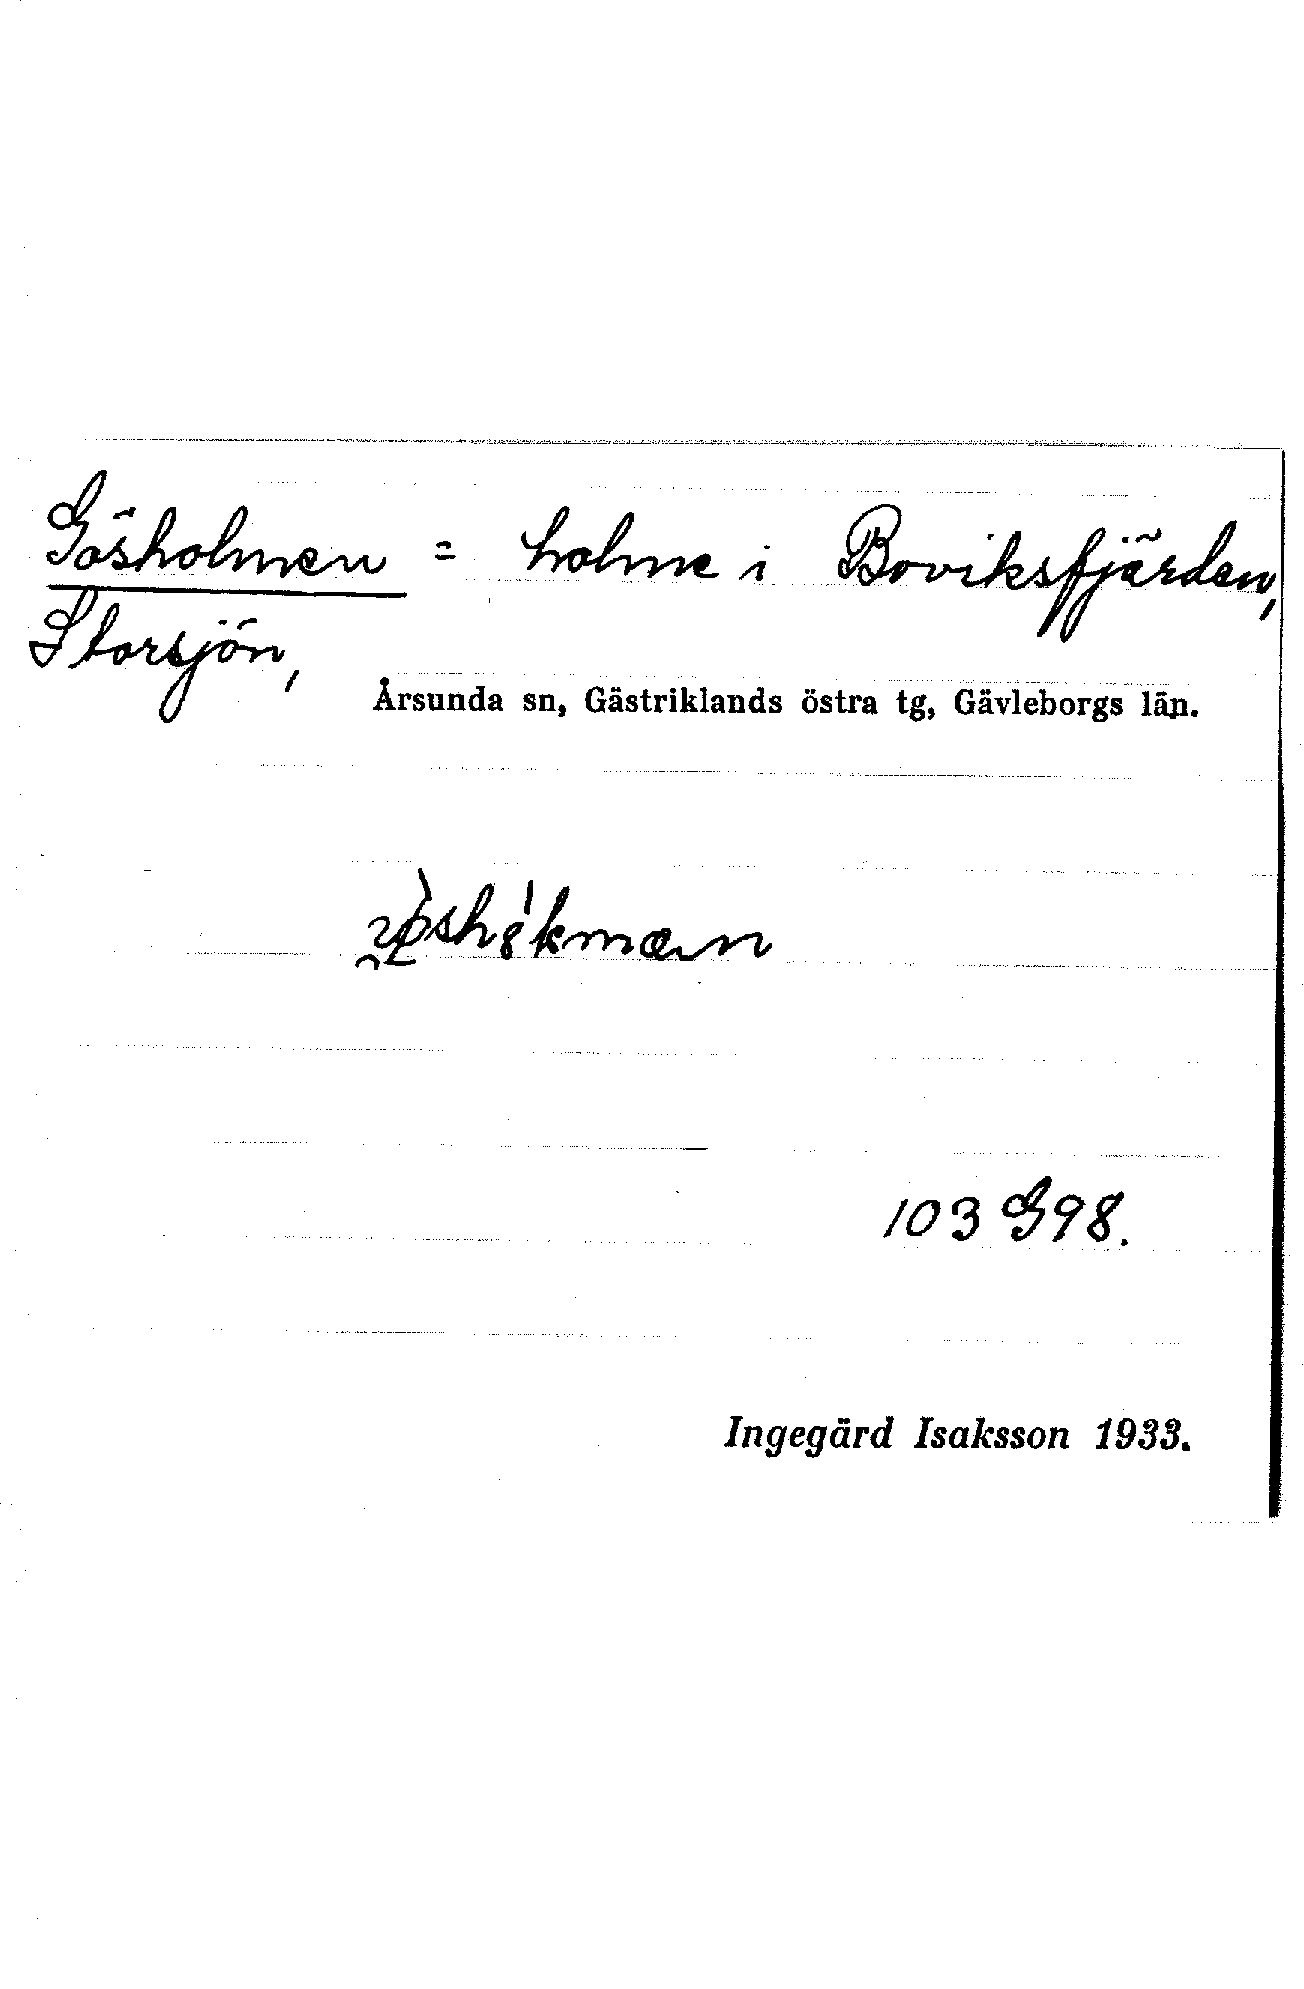 Gösholmen = holme i Boviksfjärden,
Storsjön,
Årsunda sn, Gästriklands östra tg, Gävleborgs län.
103 G98.
Ingegärd Isaksson 1933.